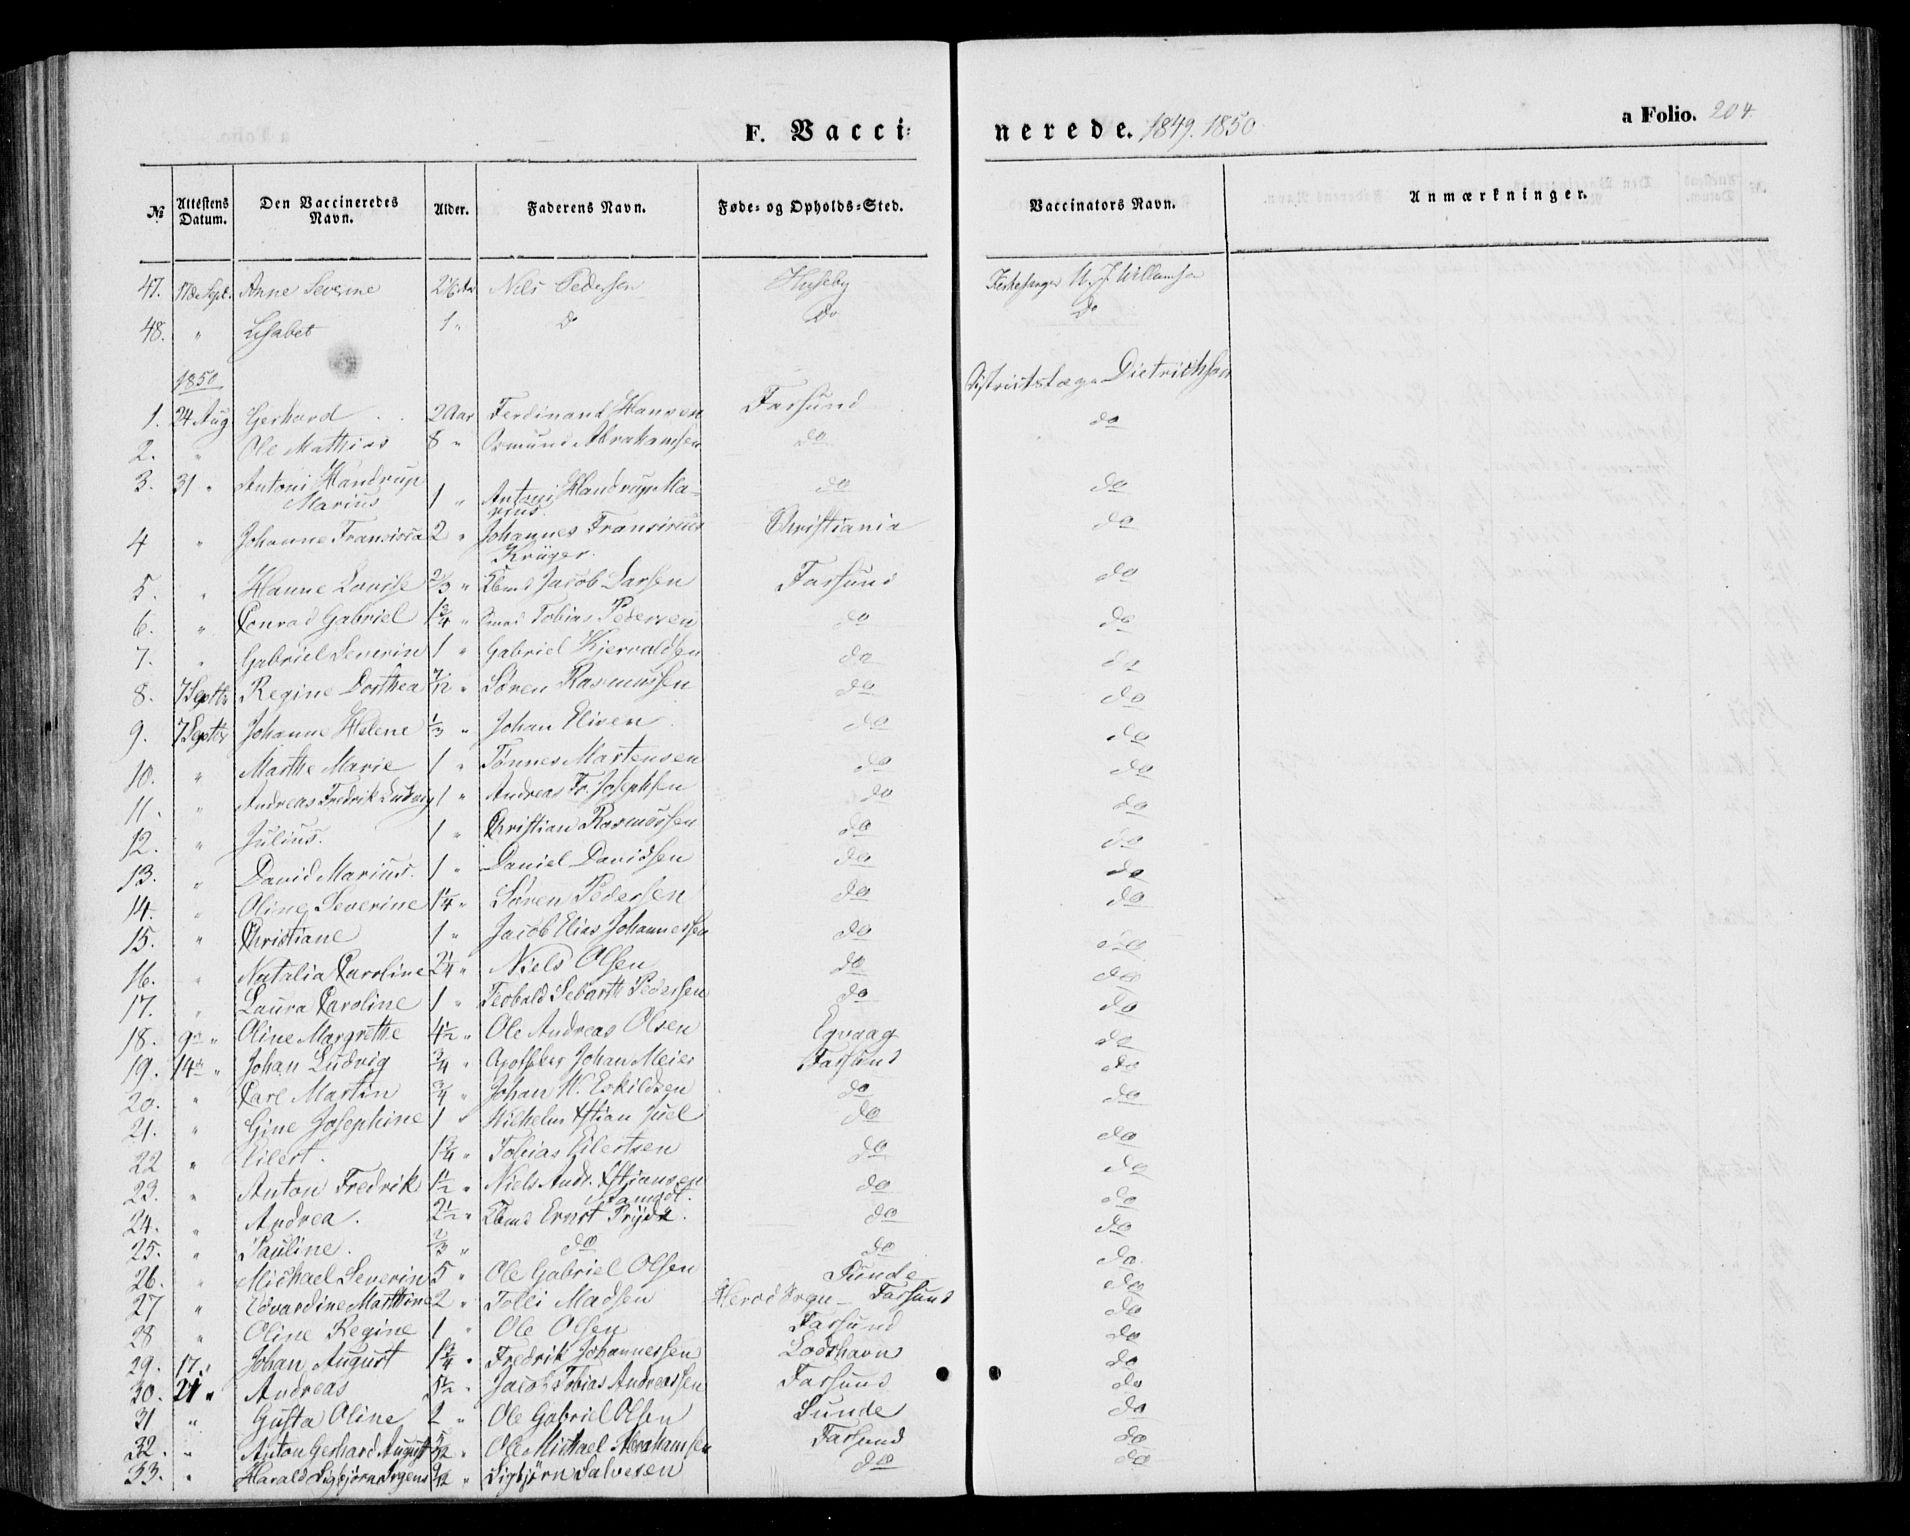 F. Vaccinerede. 1849. 1850 a Folio. 204.
№ Attestens Datum. Den Vaccineredes Navn. Alder. Faderens Navn. Føde- og Opholds-Sted. Vaccinators Navn. Anmærkninger.
47. 17de Sept. Anne Severine Nils Pedersen Huseby Kirkesanger Willumsen
48. " Lisabet 1 " do do do
1850
1. 24 Aug Gerhard 2 Aar Ferdinand Hansen Farsund Districtslæge Dietrichson
2. " Ole Mathias 8 " Osmund Abrahamsen do do
3. 31 " Antoni Handrup Marius 1 " Antoni Handrup Ma- rius. do do
4 " Johanne Fransisca 2 " Johannes Fransiscus Krüger. Christiania do
5. " Hanne Lovise 2/3 " Kbmd Jacob Larsen Farsund do
6. " Conrad Gabriel 1 3/4 " Tobias Pedersen do do
7. " Gabriel Severin 1 " Gabriel Kjervaldsen do do
8. 7 Septbr Regine Dorthea 7/12 " Søren Rasmussen do do
9. 7 Septbr Johanne Helene 1/3 " Johan Elisen do do
10. " Marthe Marie 1 " Tønnes Martensen do do
11. " Andreas Fredrik Ludvig 1 " Andreas Fr. Josephsen do do
12. " Julius. 1 " Christian Rasmussen do do
13. " David Marius. 1 " Daniel Davidsen do do
14. " Oline Severine 1 1/4 " Søren Pedersen do do
15. " Christiane 1 " Jacob Elias Johannessen do do
16. " Natalia Caroline 2 1/4 " Niels Olsen do do
17. " Laura Caroline 1 " Teobald Pedersen do do
18. 9de " Oline Margrethe 4 1/2 " Ole Andreas Olsen Egvaag do
19. 14de " Johan Ludvig 3/4 " Apotheker Johan Meier Farsund do
20. " Carl Martin 3/4 " Johan W. Eskildsen do do
21. " Gine Josephine 1 " Wilhelm Xstian Juel do do
22 " Eilert. 1 3/4 " Tobias Eilertsen do do
23. " Anton Fredrik 1 1/2 " Niels Andr. Xstiansen do do
24. " Andrea. 2 1/2 " Kbmd Ernst Prydz. do do
25. " Pauline. 2/3 " do do do
26. " Michael Severin 5 " Ole Gabriel Olsen Sunde do
27 " Edvardine Marthine 2 " Tolli Madsen Farsund do
28 " Oline Regine 1 " Ole Olsen Farsund do
29. 17 " Johan August 1 3/4 " Fredrik Johannessen Lodshavn do
30. 21 " Andreas 5 1/2 " Jacob Tobias Andreassen Farsund do
31 " Gusta Oline 2 " Ole Gabriel Olsen Sunde do
32. " Anton Gerhard August Ole Michael Abrahamsen Farsund do
33. " Harald Sigbjørn Sigbjørn Salvesen do do